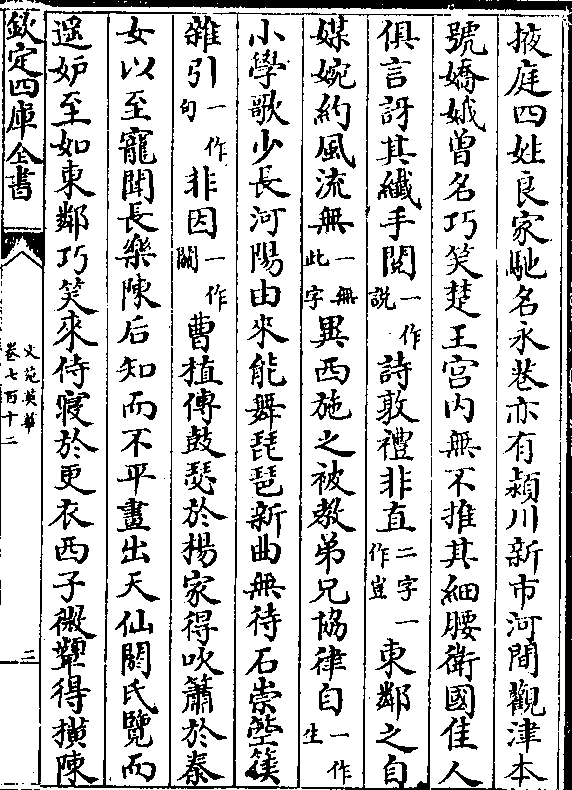 掖庭四姓良家馳名永巷亦有潁川新市河間觀津本
號嬌娥曾名巧笑楚王宮內無不推其細腰衛國佳人
俱言訝其纖手閱一作說詩敦禮非直二字一作豈東鄰之自
媒婉約風流無一無此字異西施之被教弟兄協律自一作生
小學歌少長河陽由來能舞琵琶新曲無待石崇箜篌
雜引一作句非因一作關曹植傳鼓瑟於楊家得吹簫於秦
女以至寵聞長樂陳后知而不平畫出天仙閼氏覽而
遥妒至如東鄰巧笑來侍寢於更衣西子微顰得橫陳
欽定四庫全書
文苑英華
卷七百十二
三